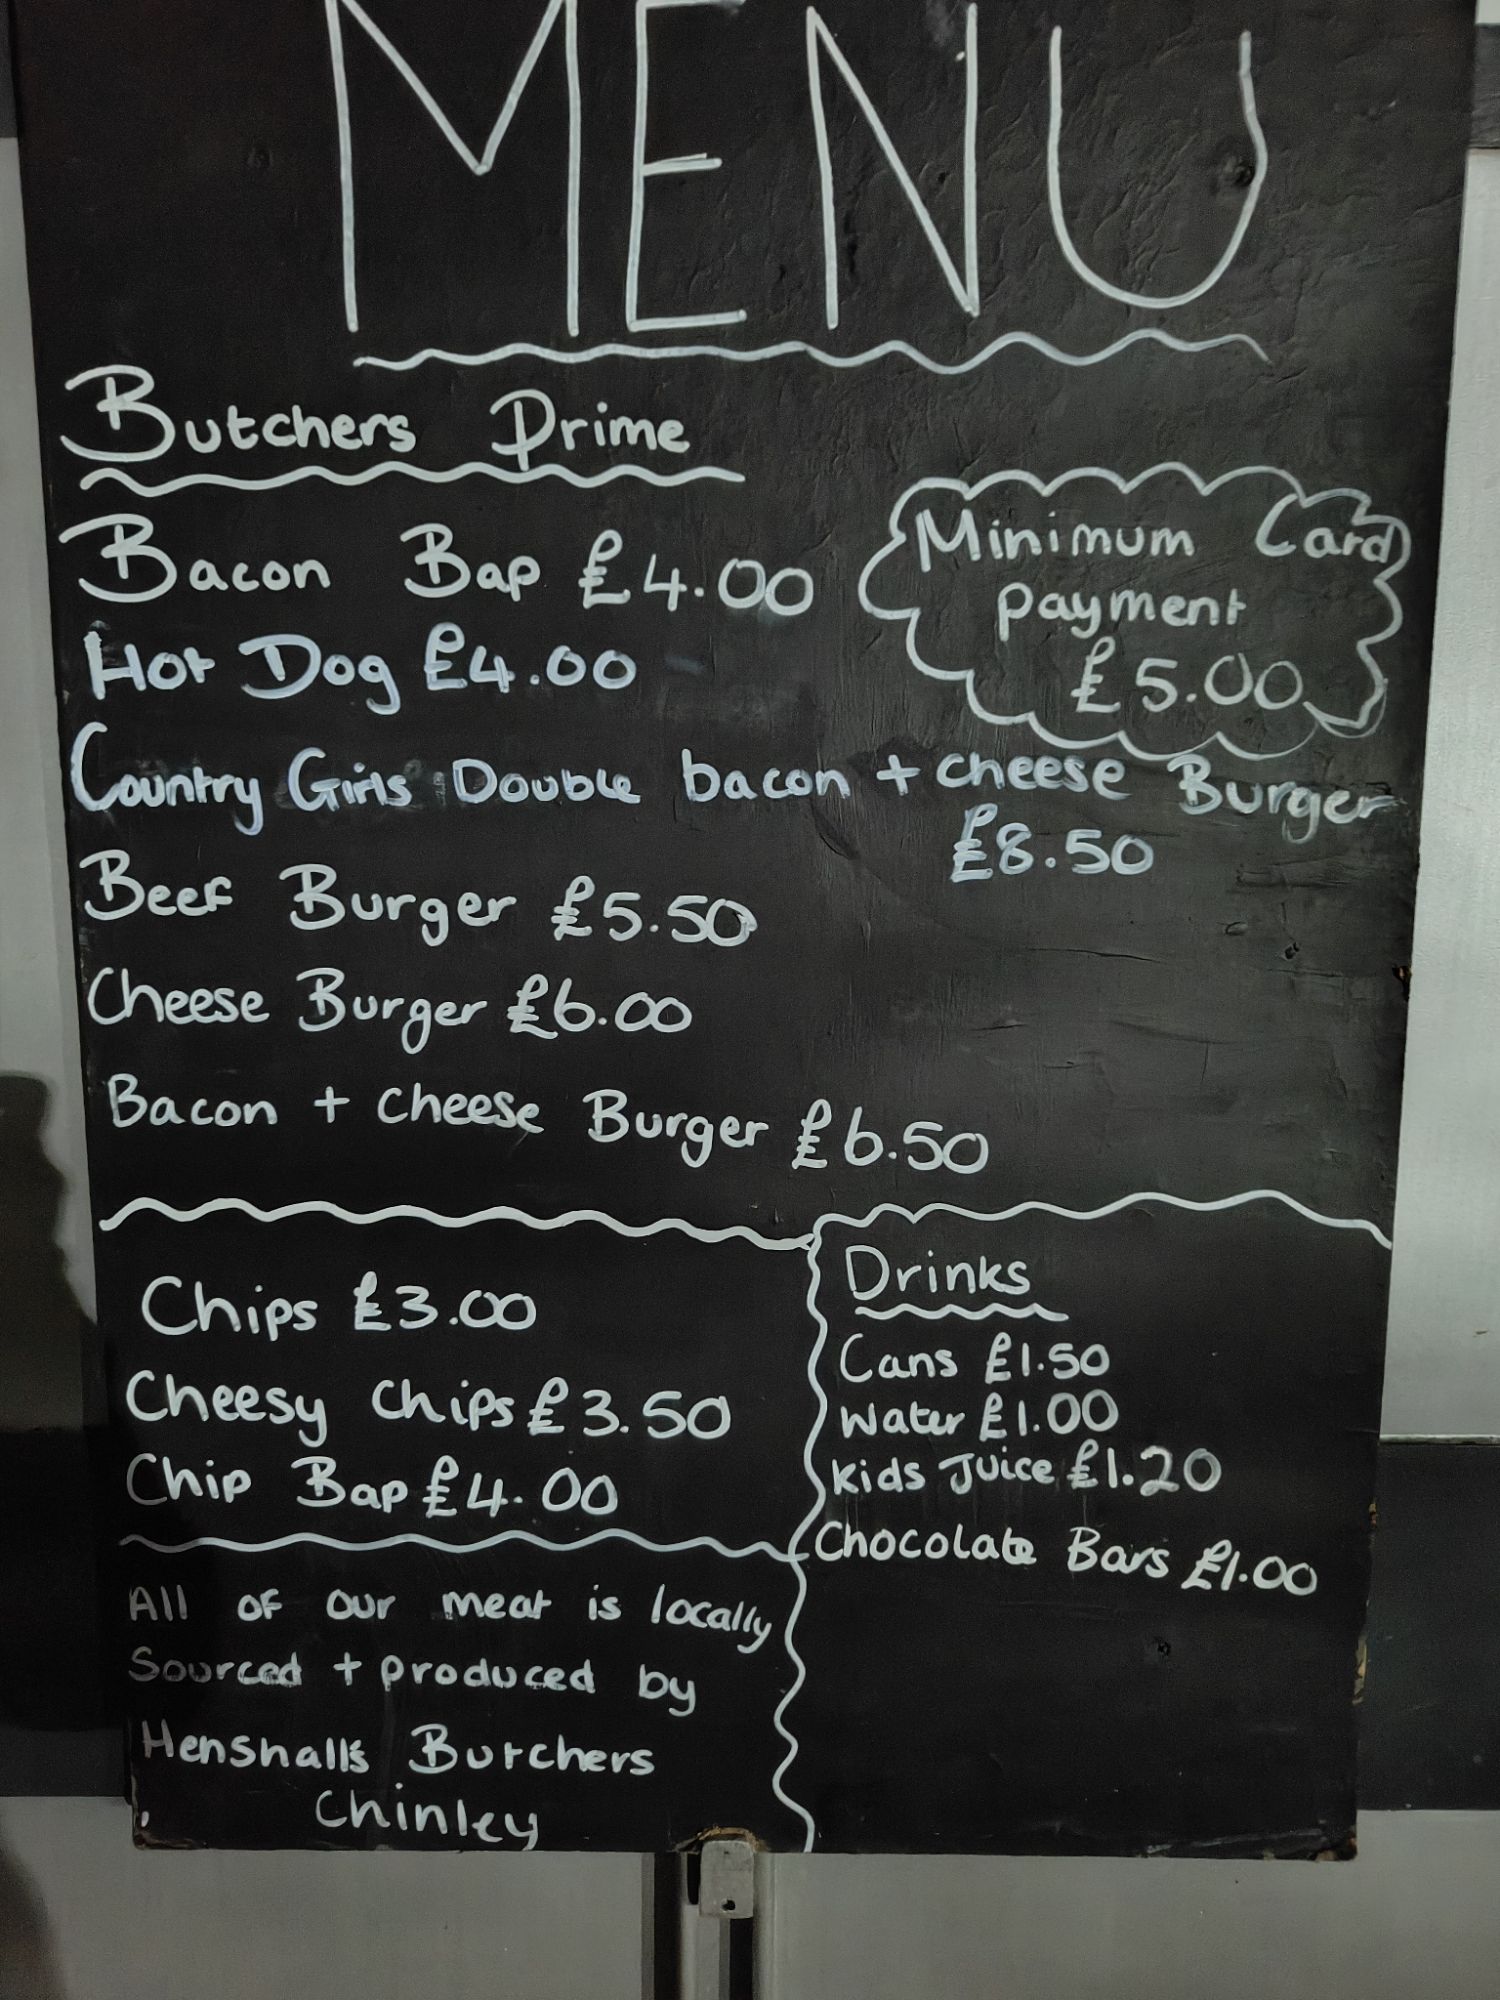 MENU
Butchers Prime
Bacon Bap £4.00
Minimum Card
payment
£5.00
Hot Dog £4.00
Country Girls Double bacon + cheese Burger
£8.50
Beef Burger £5.50
Cheese Burger £6.00
Bacon + cheese Burger £6.50
Chips £3.00
Cheesy Chips £3.50
Chip Bap £4.00
Drinks
Cans £1.50
Water £1.00
Kids Juice £1.20
Chocolate Bars £1.00
All of our meat is locally
Sourced + produced by
Henshall's Butchers
Chinley